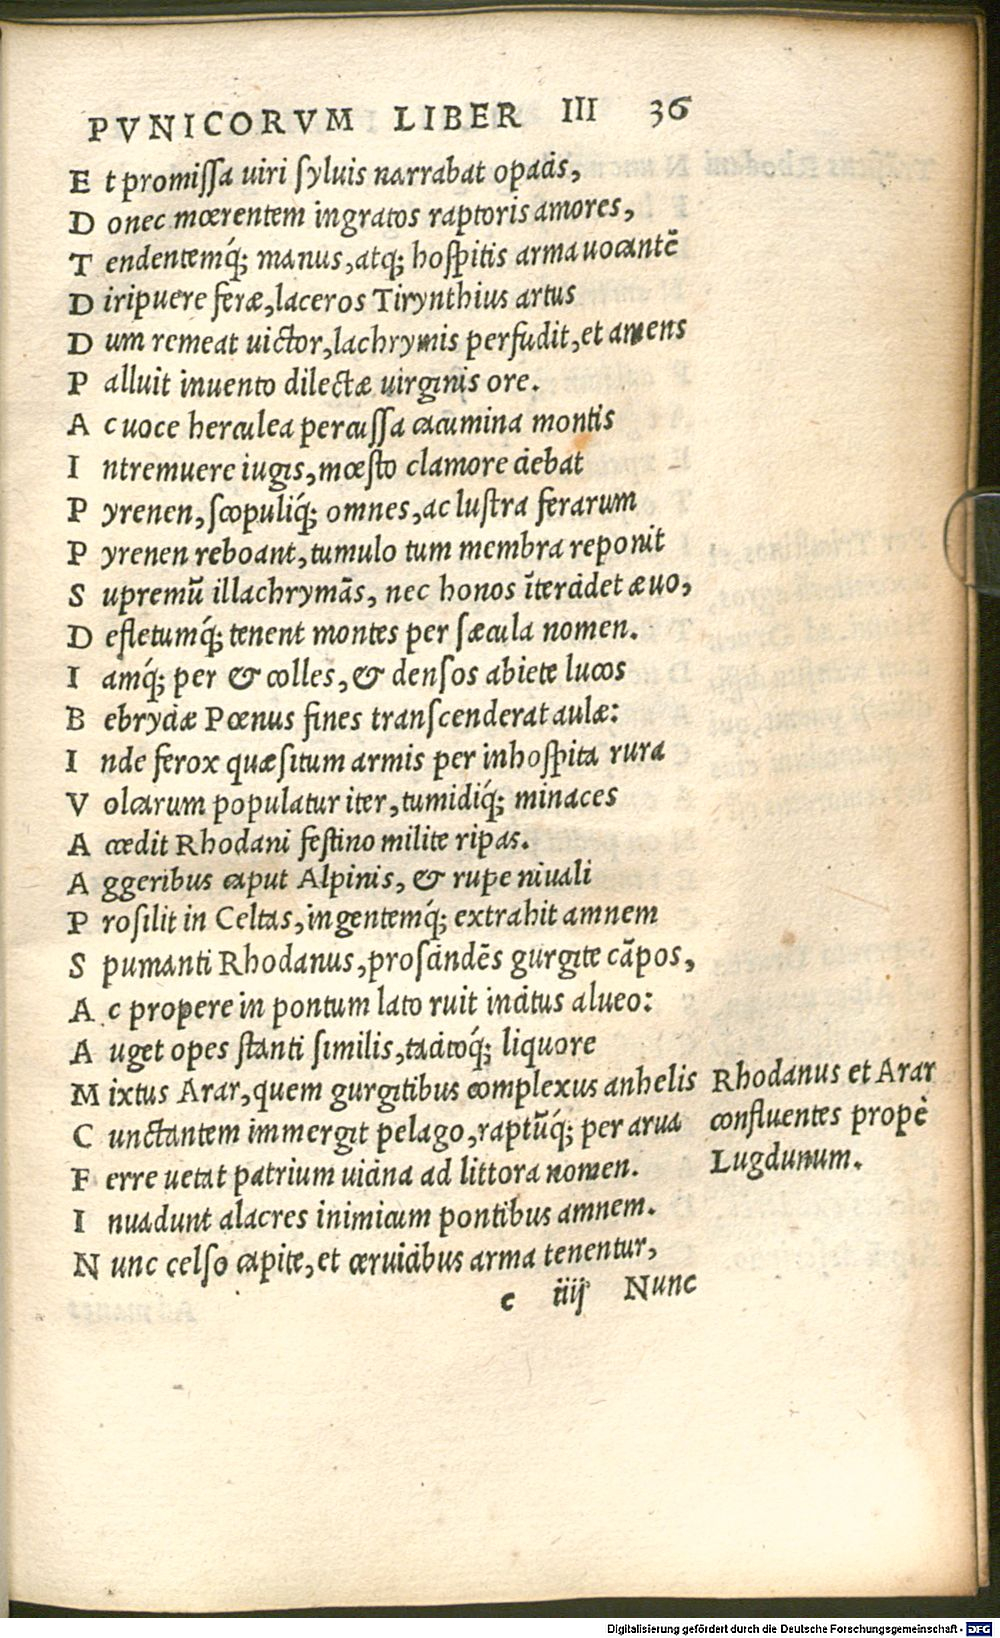 PVNICORVM LIBER III 36
E t promissa uiri syluis narrabat opacis,
D onec mœrentem ingratos raptoris amores,
T endentemq́; manus, atq; hospitis arma uocantē
D iripuere feræ, laceros Tirynthius artus
D um remeat uictor, lachrymis perfudit, et amens
P alluit inuento dilectæ uirginis ore.
A c uoce herculea percussa cacumina montis
I ntremuere iugis, mœsto clamore ciebat
P yrenen, scopuliq́; omnes, ac lustra ferarum
P yrenen reboant, tumulo tum membra reponit
S upremū illachrymās, nec honos ītercidet æuo,
D efletumq́; tenent montes per sæcula nomen.
I amq́; per & colles, & densos abiete lucos
B ebryciæ Pœnus fines transcenderat aulæ:
I nde ferox quæsitum armis per inhospita rura
V olcarum populatur iter, tumidiq́; minaces
A ccedit Rhodani festino milite ripas.
A ggeribus caput Alpinis, & rupe niuali
P rosilit in Celtas, ingentemq́; extrahit amnem
S pumanti Rhodanus, proscindēs gurgite cāpos,
A c propere in pontum lato ruit incitus alueo:
A uget opes stanti similis, tacitoq́; liquore
M ixtus Arar, quem gurgitibus complexus anhelis
C unctantem immergit pelago, raptūq́; per arua
F erre uetat patrium uicina ad littora nomen.
I nuadunt alacres inimicum pontibus amnem.
N unc celso capite, et ceruicibus arma tenentur,
c iiij Nunc
Rhodanus et Arar
confluentes propè
Lugdunum.
Digitalisierung gefördert durch die Deutsche Forschungsgemeinschaft - DFG